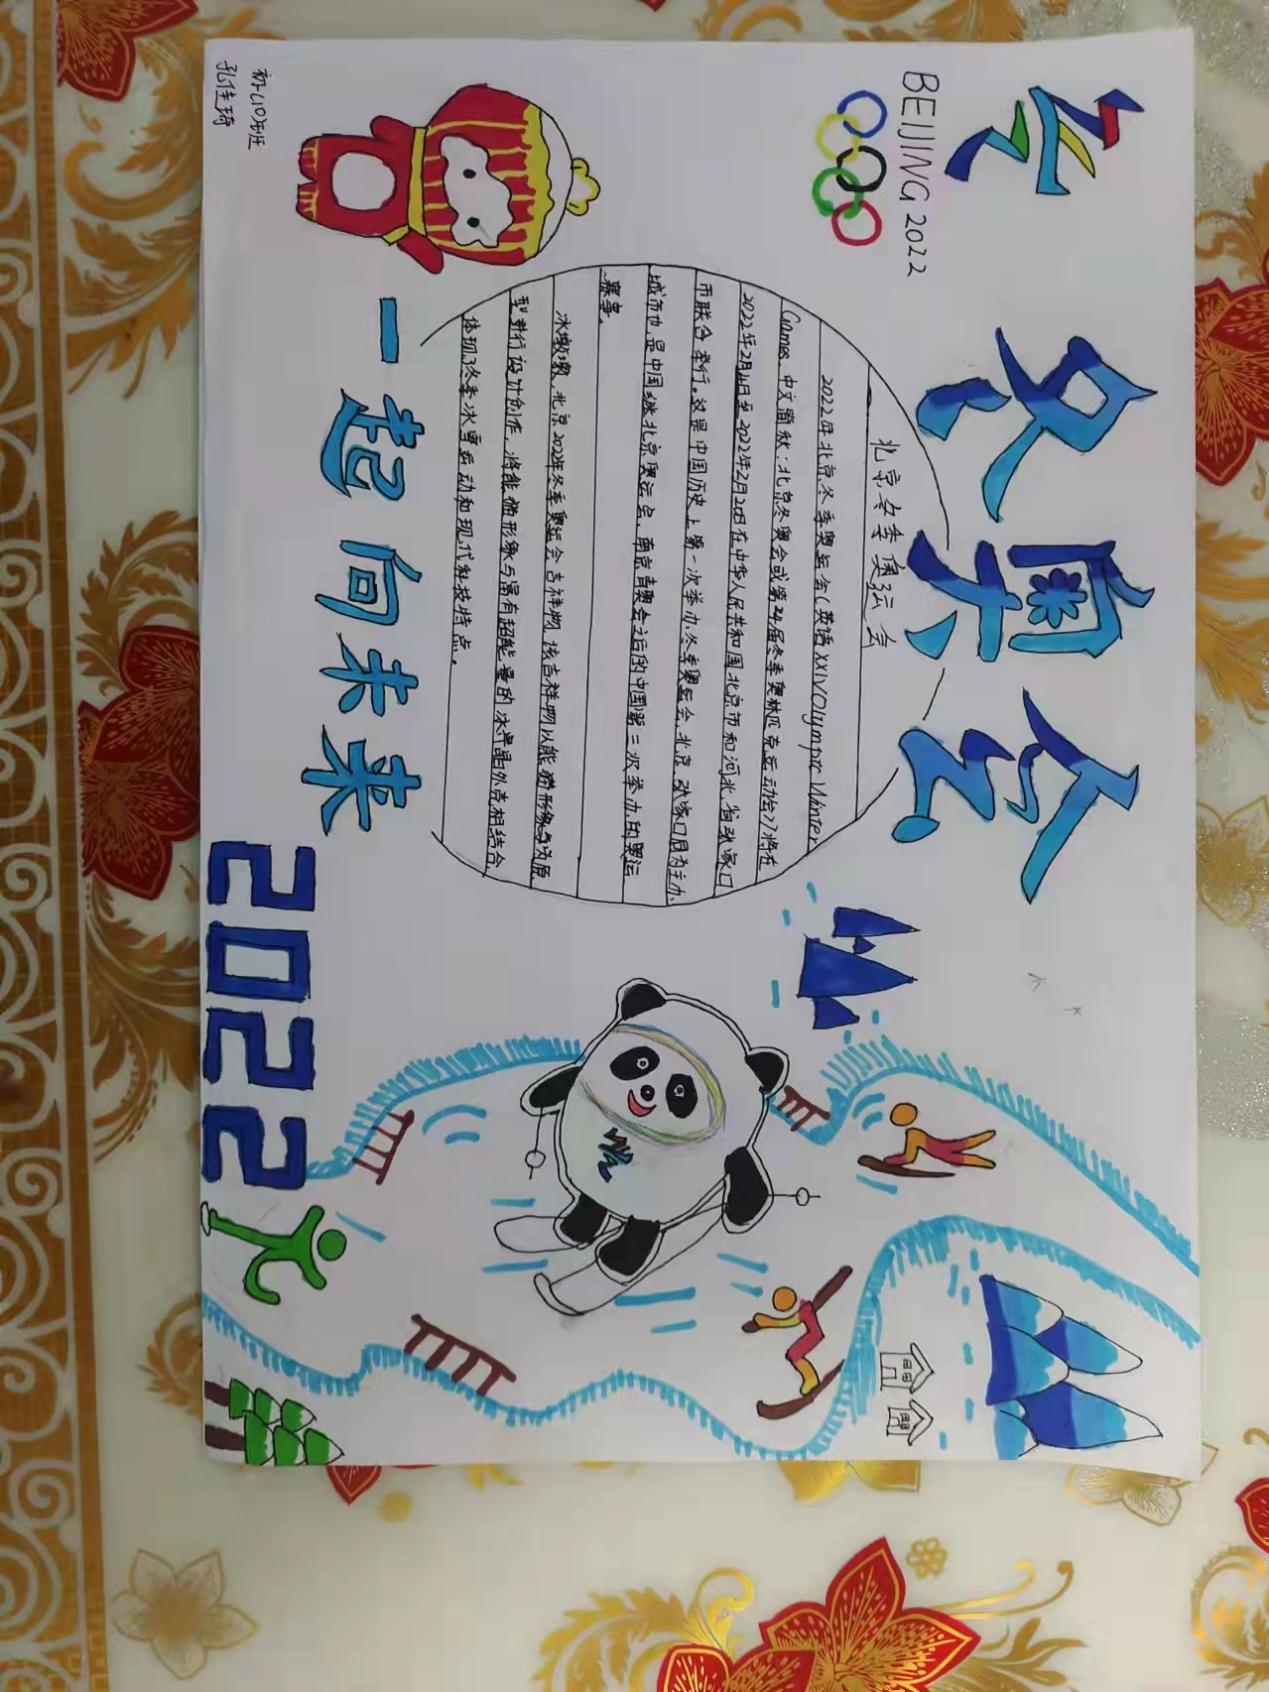 冬奥会
BEIJING 2022
北京冬季奥运会
2022年北京冬季奥运会(英语XXIVOlympic Winter
Games, 中文简秋:北京冬奥会或第24届冬季奥林匹克运动绘))将在
2022年2月4日至2022年2月20日在中华人民共和国北京市和河北省张家口
市联合举行。这是中国历史上第一次举办冬季奥运会,北京、张家口同为主办
城市也是中国继北京奥运会,南京青奥会之后的中国第三次举办的奥运
赛事。
冰墩墩,北京2022年冬季奥运会吉祥物,该吉祥物以熊猫形象为原
型进行设计创作,将熊猫形象与富有超能量的冰晶外壳相结合,
体现了冬季冰雪运动和现代科技特点。
一起向未来
2022
初一(10)班
孔佳琦